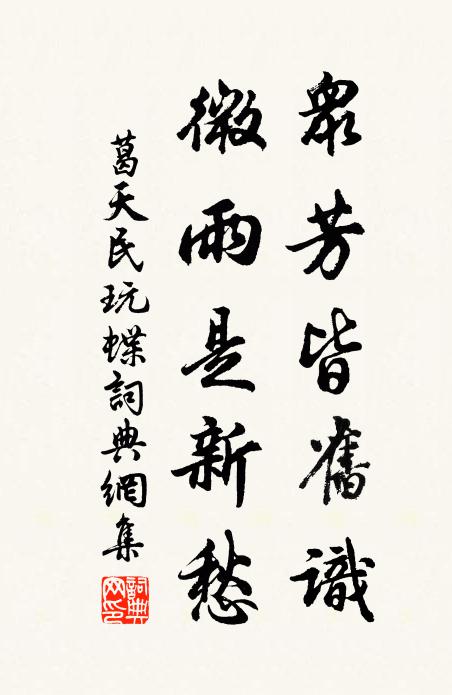 眾芳皆舊識
微雨是新愁
葛天民玩蝶詞典網集
詞典網印